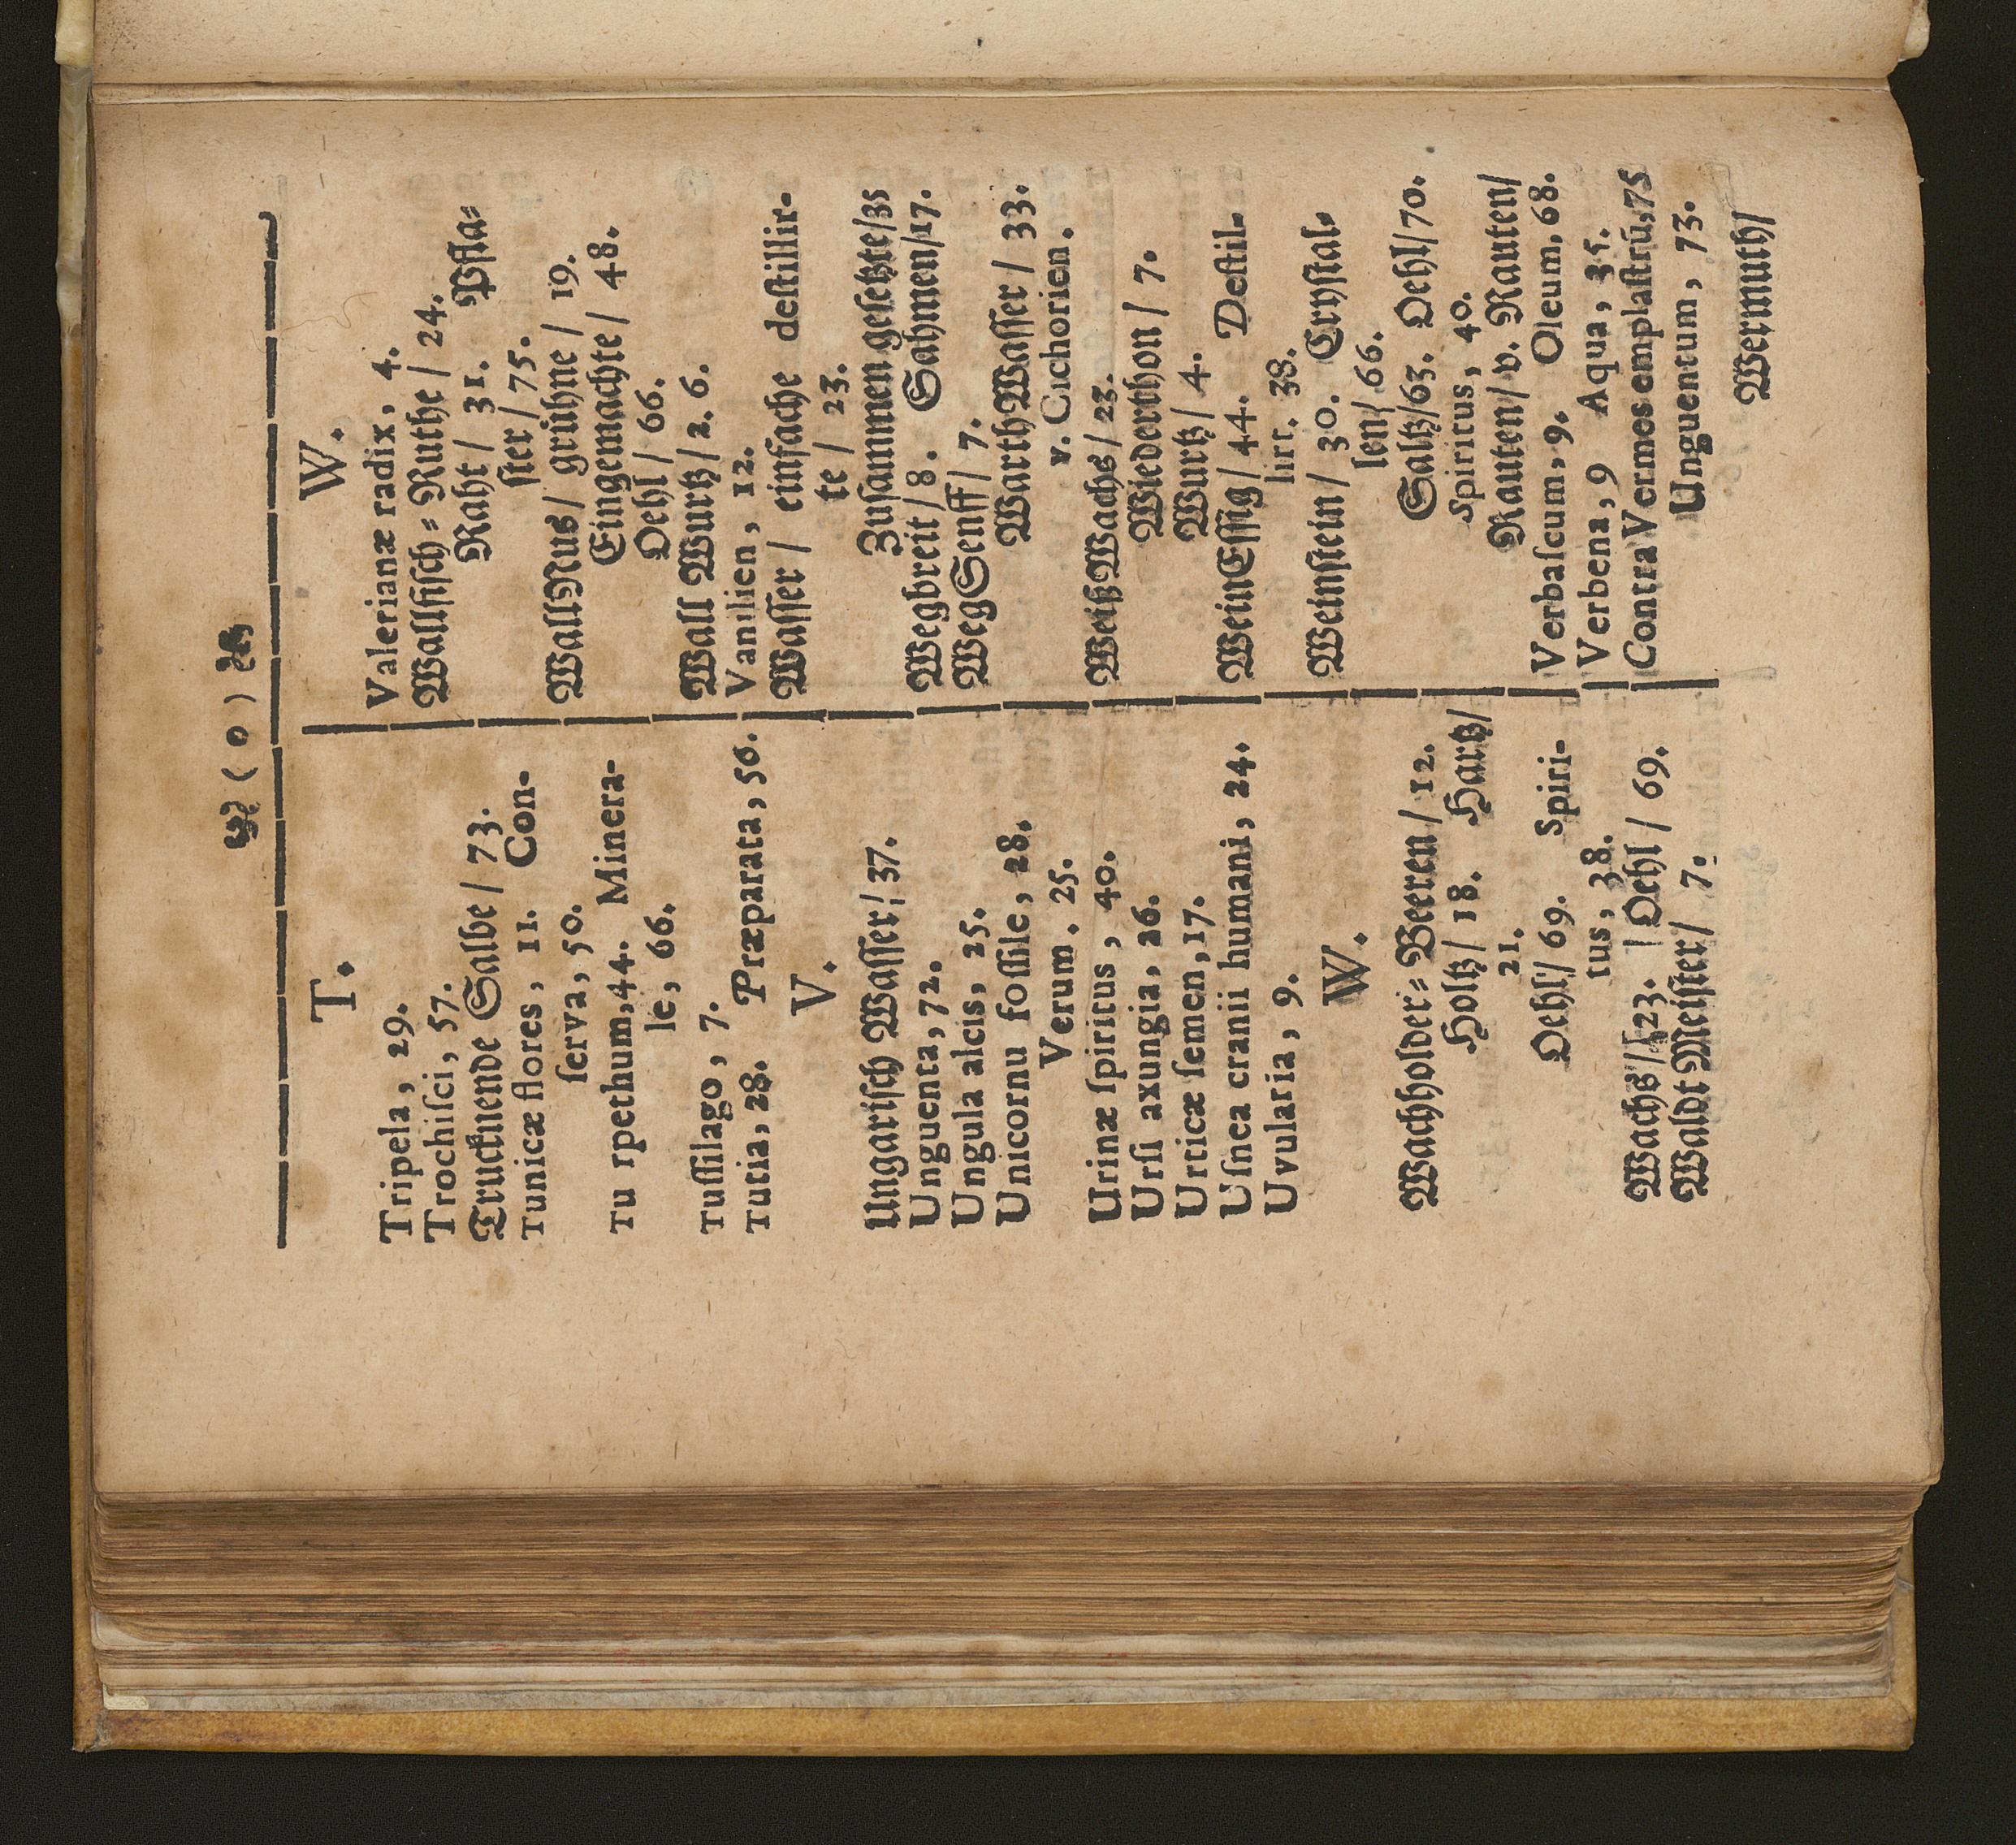 ( o )
T.
Tripela, 29.
Trochiſci, 57.
Trucknende Salbe / 73.
Tunicæ flores, 11. Con-
ſerva, 50.
Tu rpethum, 44. Minera-
le, 66.
Tuſſilago, 7.
Tutia, 28. Præparata, 56.
V.
Ungariſch Waſſer / 37.
Unguenta, 72.
Ungula alcis, 25.
Unicornu foſſile, 28.
Verum. 25.
Urinæ ſpiritus, 40.
Urſi axungia, 26.
Urticæ ſemen, 17.
Uſnea cranii humani, 24.
Uvularia, 9.
W.
Wachholder⸗Beeren / 12.
Holtz / 18. Hartz /
21.
Oehl / 69. Spiri-
tus, 38.
Wachß / 23. Oehl / 69.
Waldt Meiſter / 7.
W.
Valerianæ radix, 4.
Wallfiſch⸗Ruthe / 24.
Raht / 31. Pfla⸗
ſter / 75.
WallNuß / grühne / 19.
Eingemachte / 48.
Oehl / 66.
Wall Wurtz / 2. 6.
Vanilien, 12.
Waſſer / einfache deſtillir-
te / 23.
Zuſammen geſetzte / 35
Wegbreit / 8. Sahmen / 17.
WegSenff / 7.
WarthWaſſer / 33.
v. Cichorien.
WeißWachß / 23.
Wiederthon / 7.
Wurtz / 4.
WeinEſſig / 44. Deſtil-
lirt. 38.
Weinſtein / 30. Cryſtal⸗
len / 66.
Saltz / 63. Oehl / 70.
Spiritus, 40.
Rauten / v. Rauten /
Verbaſcum, 9. Oleum, 68.
Verbena, 9 Aqua, 35.
Contra Vermes emplaſtrū, 75
Unguentum, 73.
Wermuth /